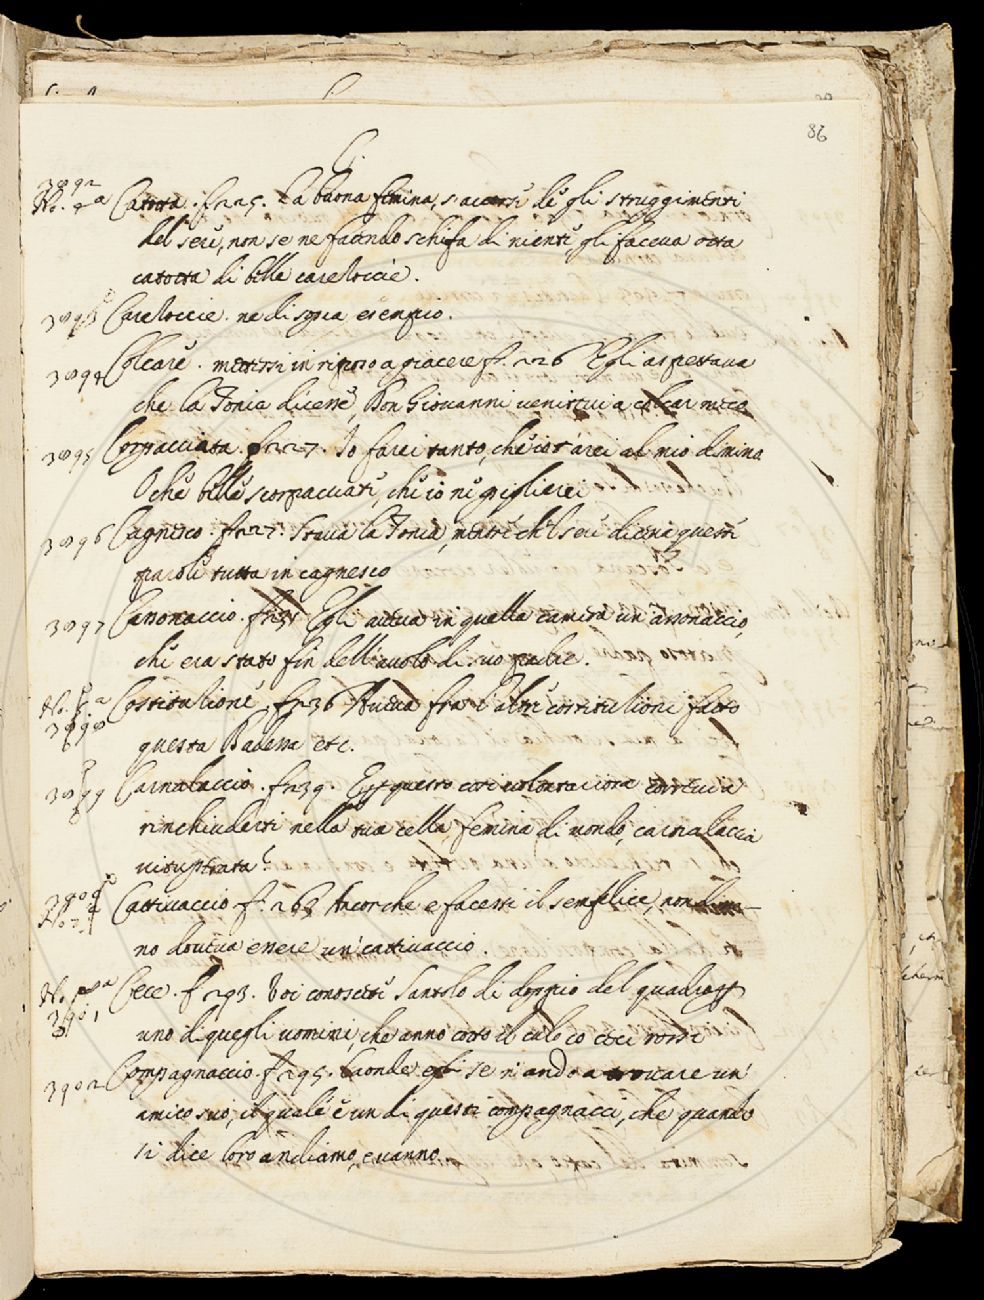 86
C.
3892
No. 2a Catotta. f. 225. La buona femina, s'accorse de gli struggimenti
del sere, non se ne facendo schifa di niente gli faceva otta
catotta di belle careloccie.
3893 Careloccie. ne di sopra esempio.
3894 Colcare. mettersi in riposo a giacere f. 226 Egli aspettava
che la Tonia dicesse, Don Giovanni venitevi a colcar meco
3895 Corpacciata. f. 227. Io farei tanto, che io t'arei al mio dimino
O che belle scorpacciate, che io ne piglierei
3896 Cagnesco. f. 227. Stava la Tonia, mentre che 'l sere diceva queste
parole tutta in cagnesco
3897 Cassonaccio. f. 231 Egli aveva in quella camera un cassonaccio,
che era stato fin dell'avolo di suo padre.
No. a
3898 Costitutione, f. 236 Aveva fra l'altre costitutioni fatto
questa Badessa etc.
3899 Carnalaccio. f. 239. E questo così volontariora
rinchiudersi nella tua cella, femina di mondo, carnalaccia
vituperata?
3900
No. Cattivaccio f. 263 Ancor che e facesse il semplice, non dima-
no doveva essere un cattivaccio.
No. a
3901 Cece. f. 293. Voi conoscete Santolo di doppio del quadro
uno di quegli uomini, che anno cotto il culo co ceci rossi
3902 Compagnaccio. f. 295. Laonde se n'andò a trovare un
amico suo, il quale è un di questi compagnacci, che quando
si dice loro andiamo, e vanno.